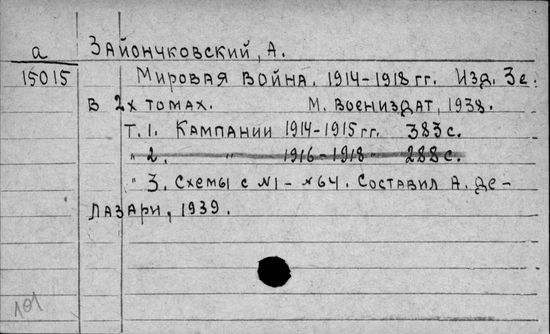 а Зайончковский, А.
15015 Мировая война. 1914-1918 гг. Изд. 3е.
В 2х томах. М. Воениздат, 1938.
Т. 1. Кампании 1914-1915 гг. 383 с.
" 2. " 1916-1918 " 288 с.
" 3. Схемы с №1-№64. Составил А. Де-
Лазари, 1939.
101